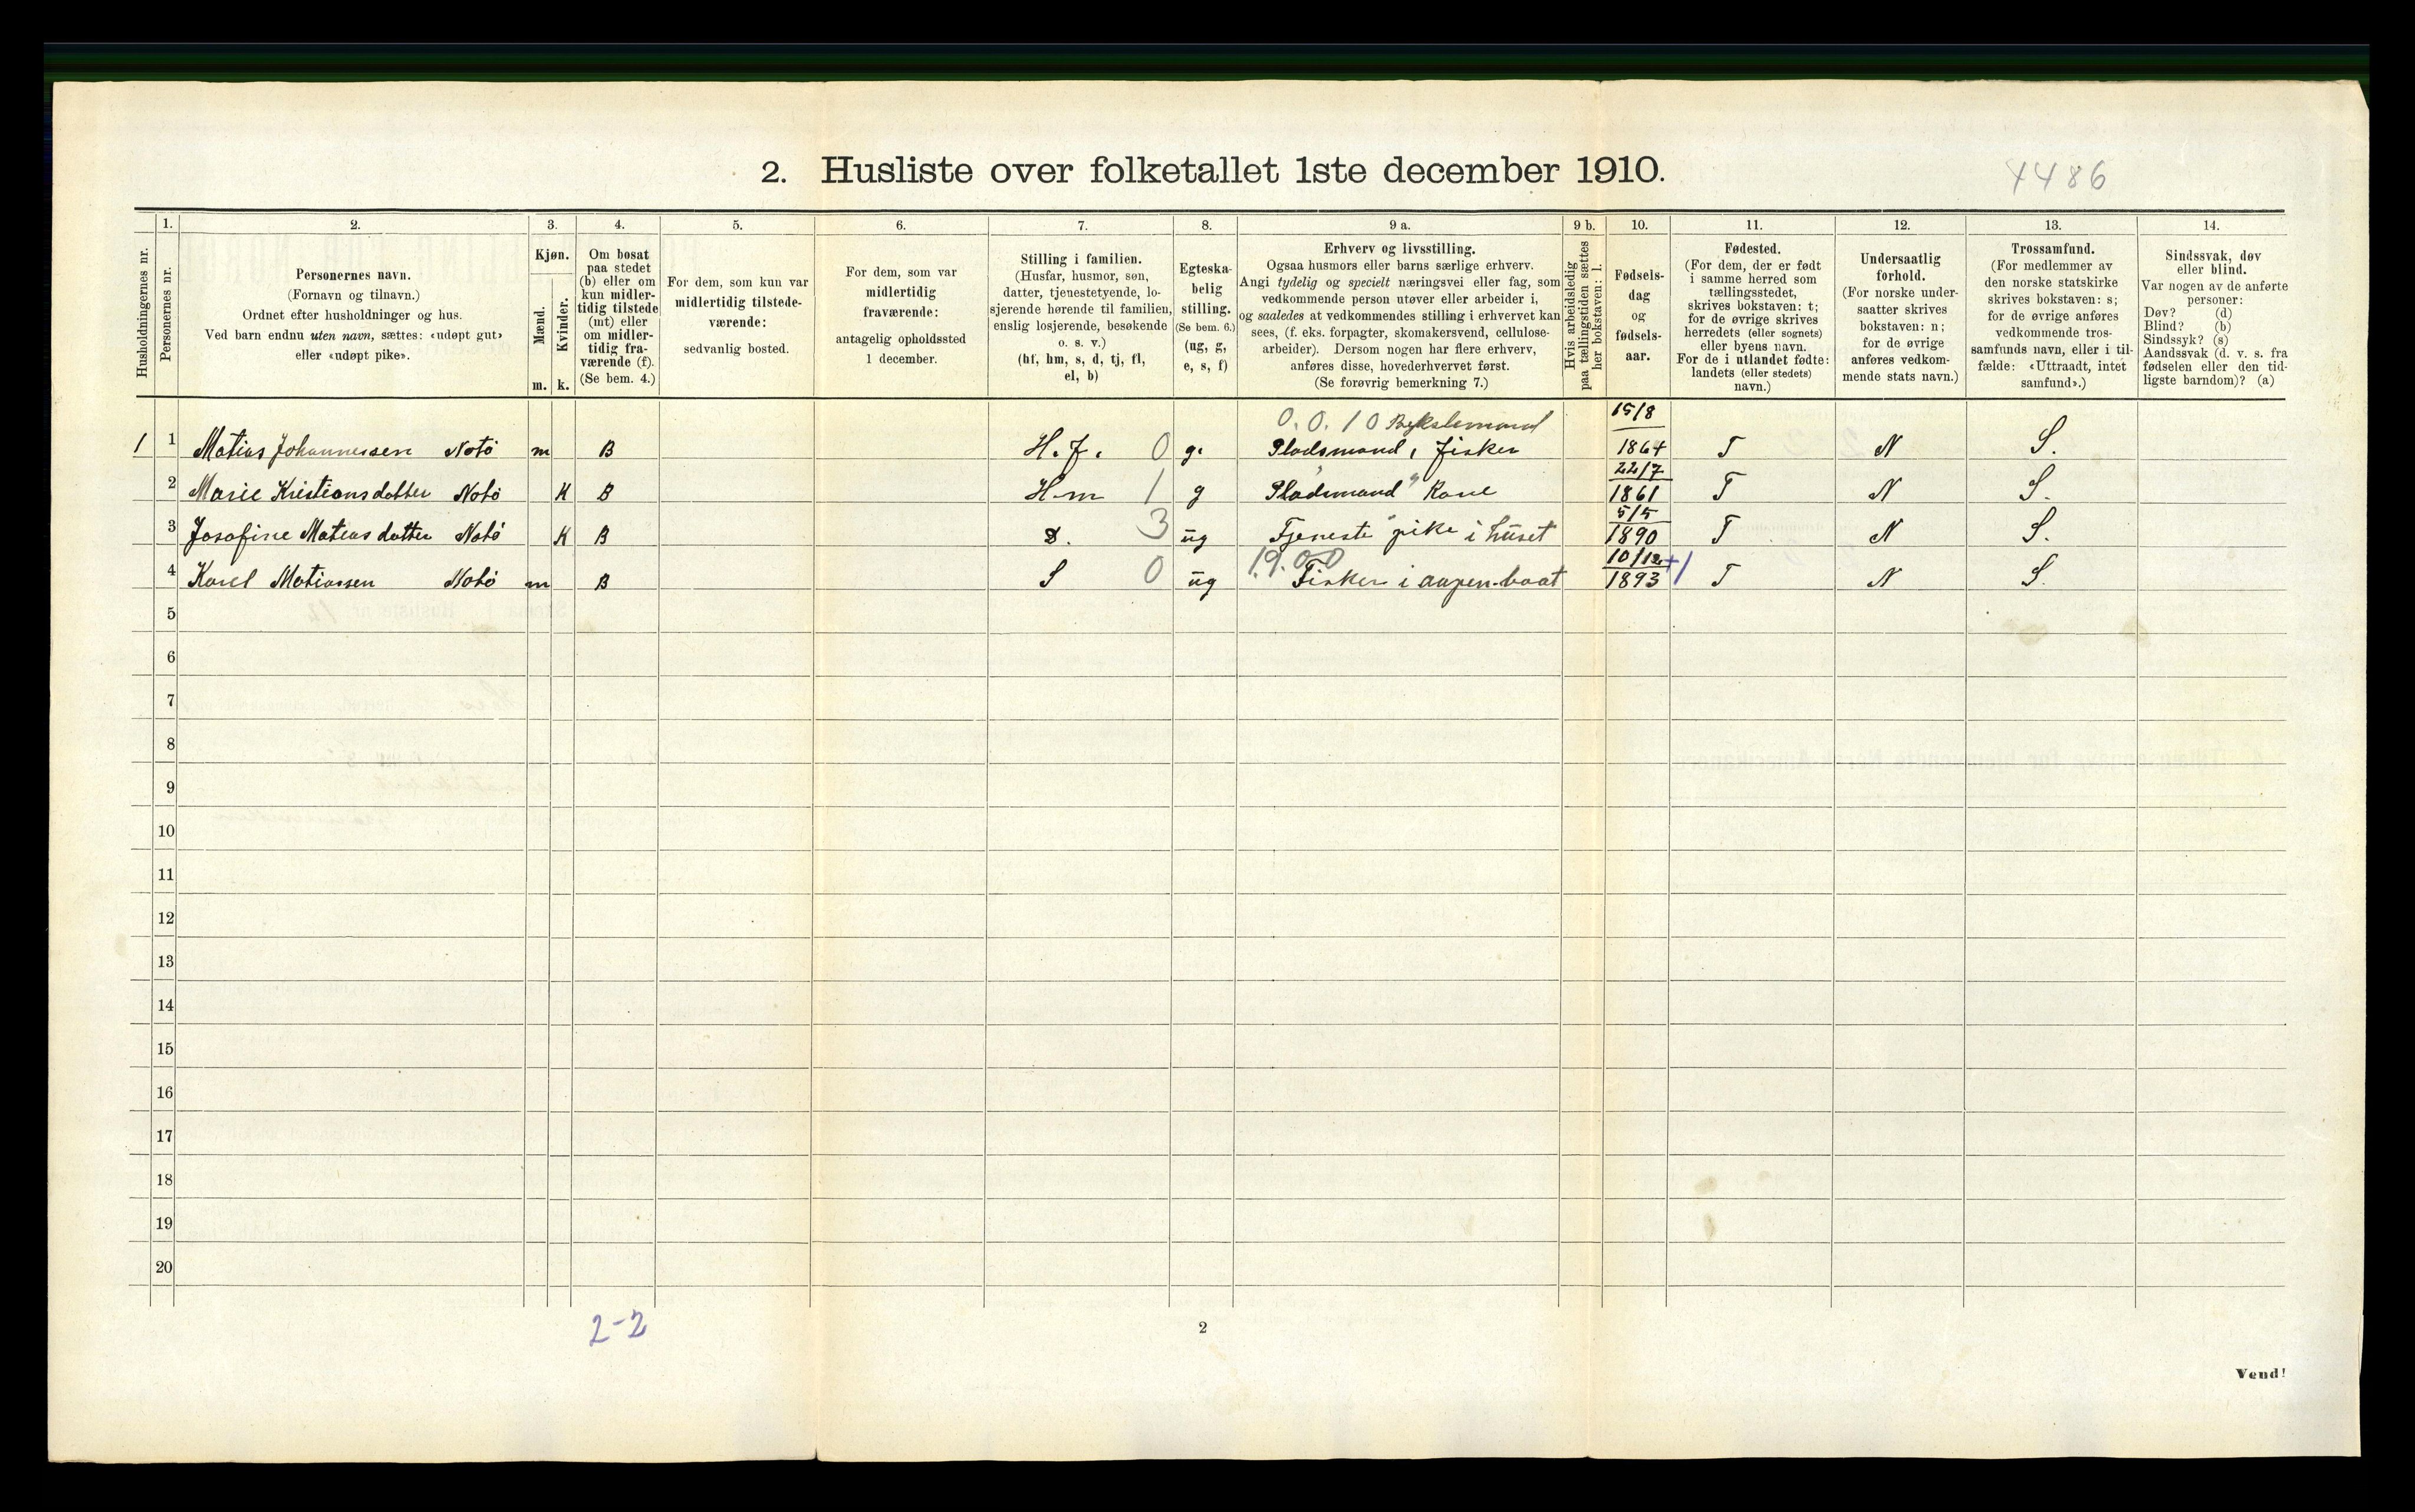 2. Husliste over folketallet 1ste december 1910.
4486
Husholdningernes nr.
1.
Personernes nr.
2.
Personernes navn.
(Fornavn og tilnavn.)
Ordnet efter husholdninger og hus.
Ved barn endnu uten navn, sættes: «udøpt gut»
eller «udøpt pike».
3.
Kjøn.
Mænd.
Kvinder.
m. k.
4.
Om bosat
paa stedet
(b) eller om
kun midler-
tidig tilstede
(mt) eller
om midler-
tidig fra-
værende (f).
(Se bem. 4.)
5.
For dem, som kun var
midlertidig tilstede-
værende:
sedvanlig bosted.
6.
For dem, som var
midlertidig
fraværende:
antagelig opholdssted
1 december.
7.
Stilling i familien.
(Husfar, husmor, søn,
datter, tjenestetyende, lo-
sjerende hørende til familien,
enslig losjerende, besøkende
o. s. v.)
(hf, hm, s, d, tj, fl,
el, b)
8.
Egteska-
belig
stilling.
(Se bem. 6.)
(ug, g,
e, s, f)
9 a.
Erhverv og livsstilling.
Ogsaa husmors eller barns særlige erhverv.
Angi tydelig og specielt næringsvei eller fag, som
vedkommende person utøver eller arbeider i,
og saaledes at vedkommendes stilling i erhvervet kan
sees, (f. eks. forpagter, skomakersvend, cellulose-
arbeider). Dersom nogen har flere erhverv,
anføres disse, hovederhvervet først.
(Se forøvrig bemerkning 7.)
9 b.
Hvis arbeidsledig
paa tællingstiden sættes
her bokstaven: l.
10.
Fødsels-
dag
og
fødsels-
aar.
11.
Fødested.
(For dem, der er født
i samme herred som
tællingsstedet,
skrives bokstaven: t;
for de øvrige skrives
herredets (eller sognets)
eller byens navn.
For de i utlandet fødte:
landets (eller stedets)
navn.)
12.
Undersaatlig
forhold.
(For norske under-
saatter skrives
bokstaven: n;
for de øvrige
anføres vedkom-
mende stats navn.)
13.
Trossamfund.
(For medlemmer av
den norske statskirke
skrives bokstaven: s;
for de øvrige anføres
vedkommende tros-
samfunds navn, eller i til-
fælde: «Uttraadt, intet
samfund».)
14.
Sindssvak, døv
eller blind.
Var nogen av de anførte
personer:
Døv? (d)
Blind? (b)
Sindssyk? (s)
Aandssvak (d. v. s. fra
fødselen eller den tid-
ligste barndom)? (a)
0.0.10 Bykslemand 15/8
1 1 Matias Johannessen Notö m B H.f. 0 g. Pladsmand, Fisker 1864 T N S.
22/7
2 Marie Kristiansdatter Notö K B Hm 1 g Pladsmand Kone 1861 T N S.
5/5
3 Josofine Matiasdatter Notö K B D. 3 ug Tjeneste pike i huset 1890 T N S.
19.00 10/12
4 Karel Matiassen Notö m B S 0 ug Fisker i aapen-baat 1893 1 T N S.
5
6
7
8
9
10
11
12
13
14
15
16
17
18
19
20
2-2
2
Vend!